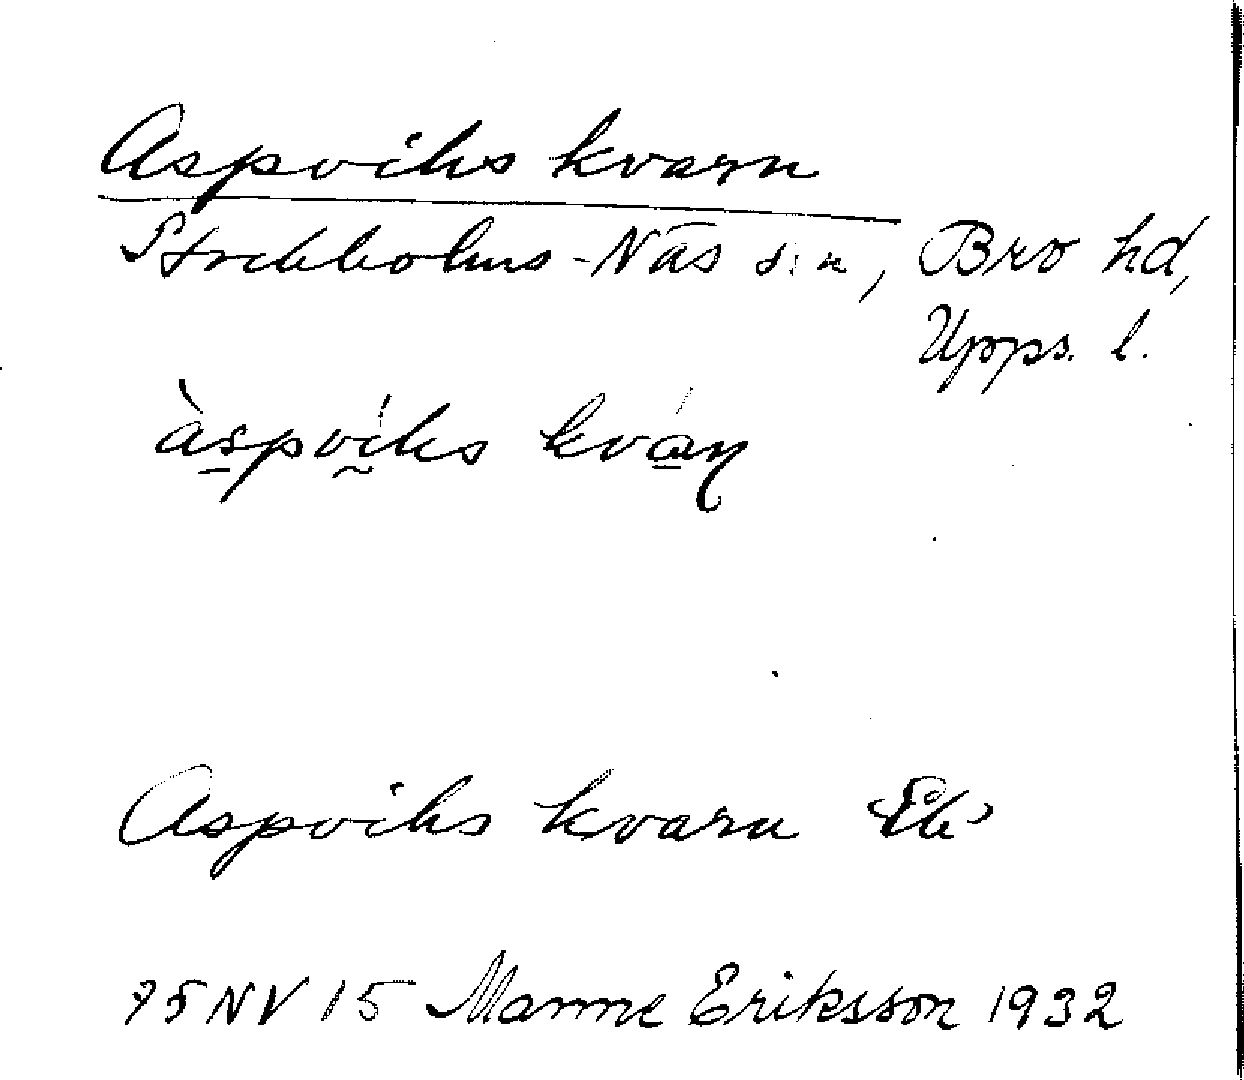 Aspviks kvarn
Stockholms-Näs s:n, Bro hd,
Upps. l.
àspvḭks kván
Aspviks kvarn Ek
75 NV 15 Manne Eriksson 1932